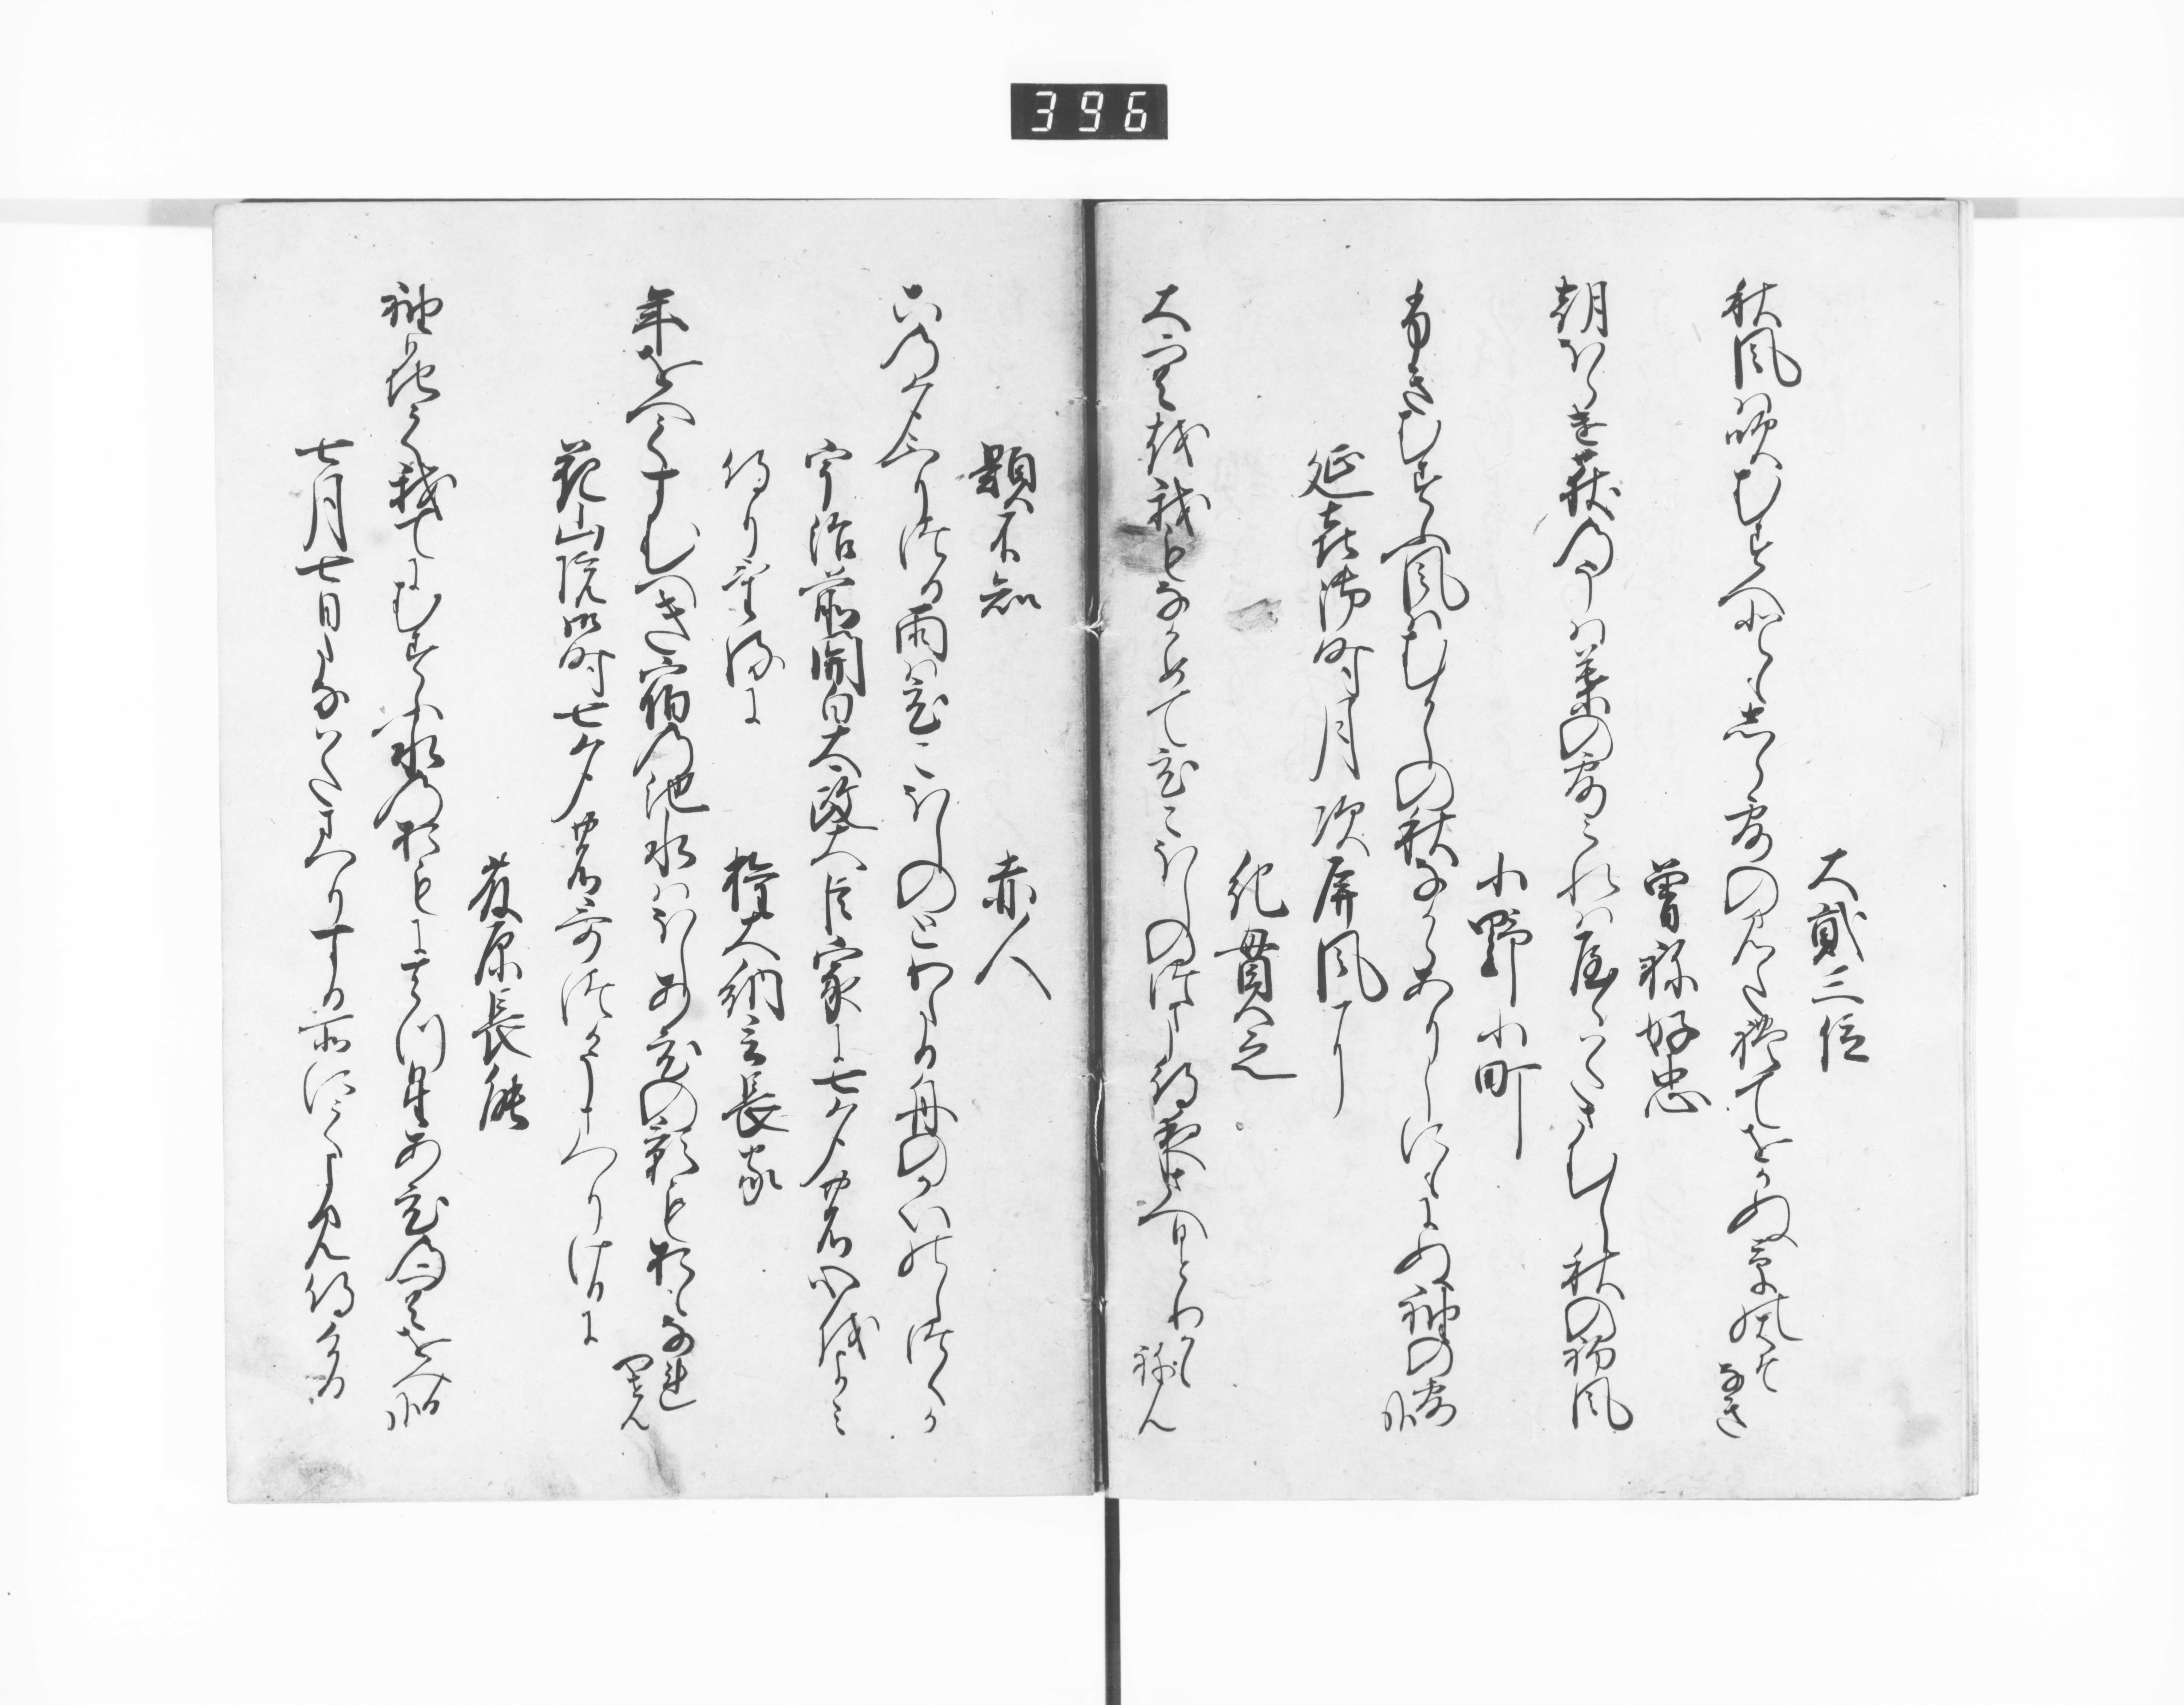 396
大貳三位
秋風は吹むすへともしら露のみたれてをかぬ草の葉そなき
曽祢好忠
朝ほらけ荻のうは葉の露みれはやゝはたさむし秋の初風
小野小町
吹むすふ風はむかしの秋なからありしにもにぬ袖の露かな
延喜御時月次屏風に
紀貫之
大空を我もなかめてひこほしのつままつ夜さへひとりかもねん
題不知
赤人
この夕ふりつる雨はひこほしのとわたる舟のかいのしつくか
宇治前関白太政大臣家に七夕の心をよみ
侍りけるに
権大納言長家
年をへてすむへき宿の池水はほしあひの影も面なれやせん
花山院御時七夕の哥つかうまつりけるに
藤原長能
袖ひちて我てにむすふ水の面にあまつ星あひの空をみるかな
七月七日たなはたまつりする所にてよみ侍ける